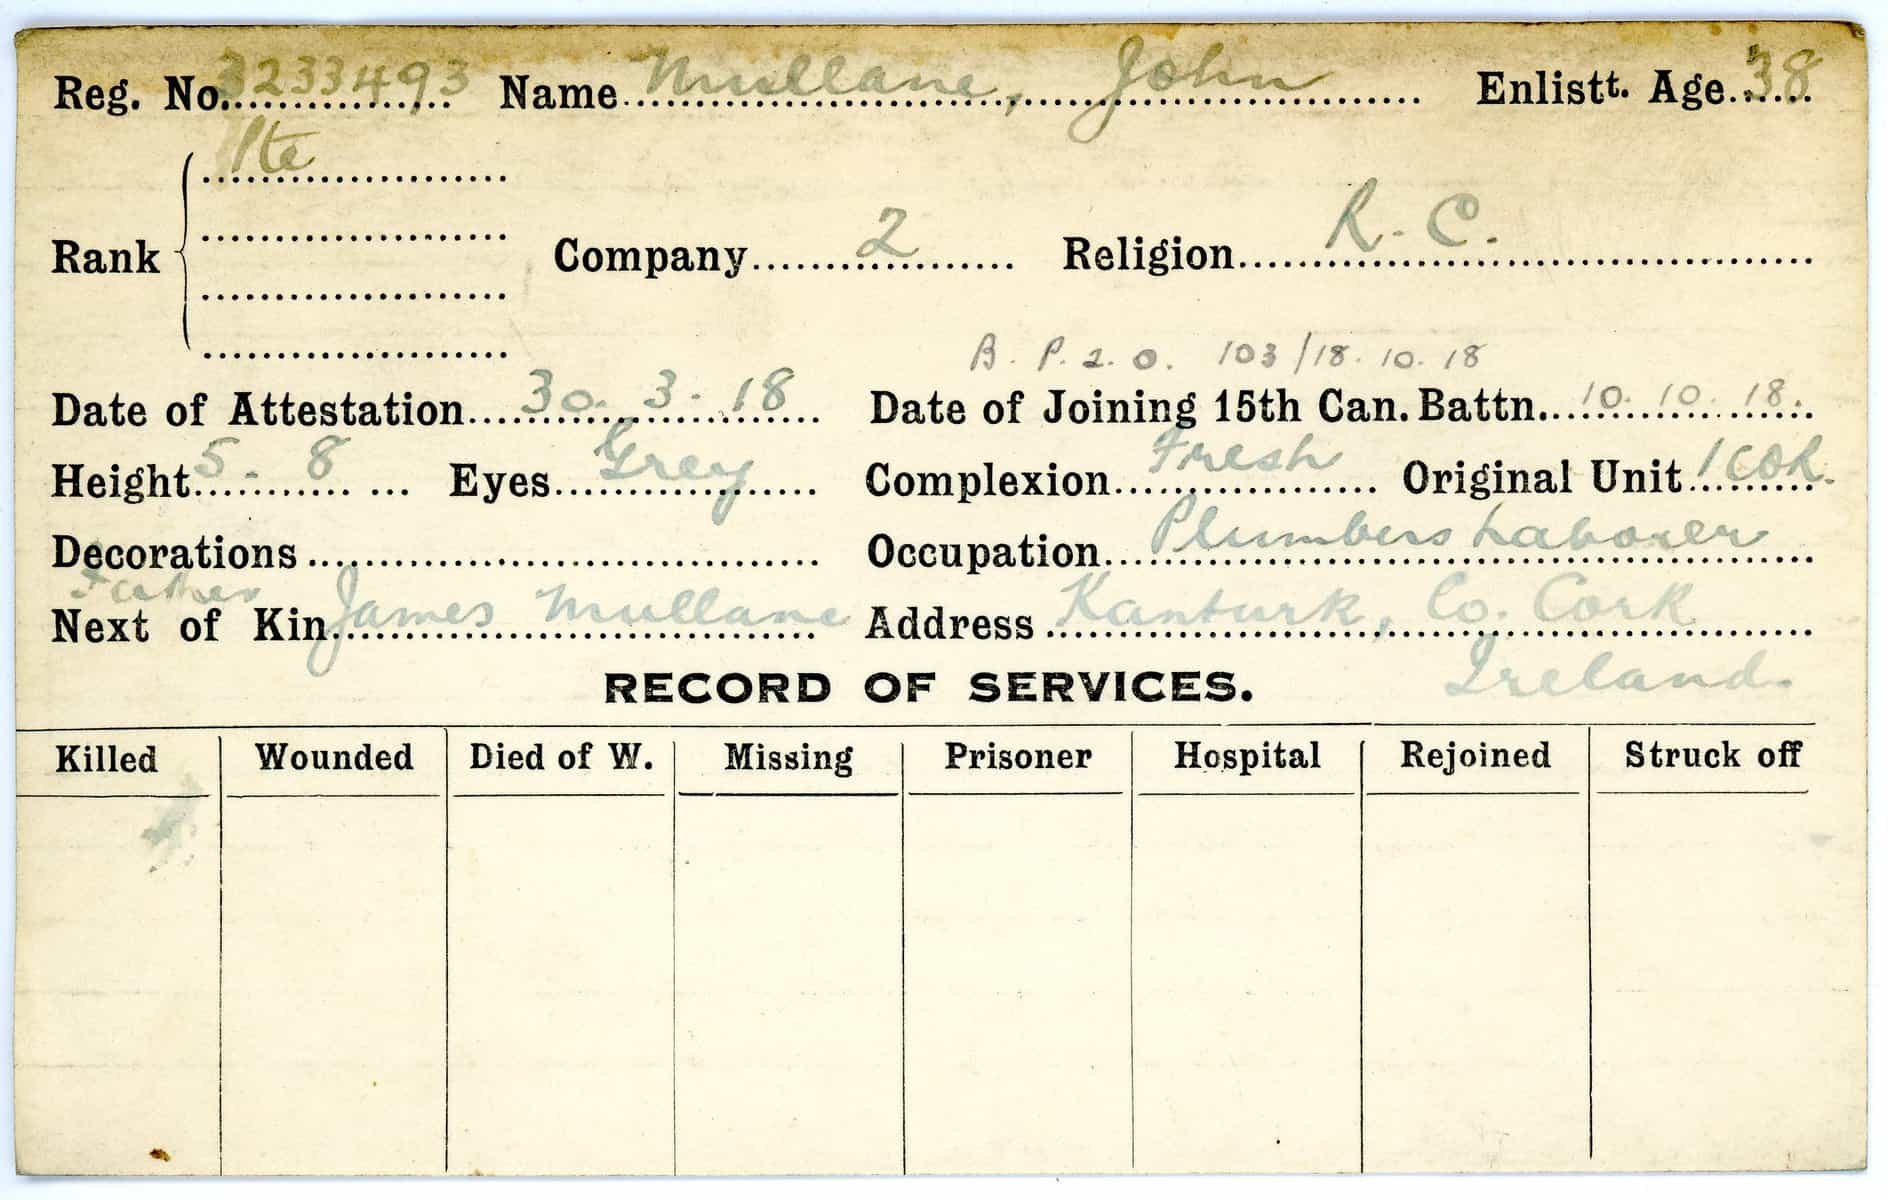 Reg. No. 3233493 Name Mullane, John Enlistt. Age 38
Pte
Rank Company 2 Religion R. C.
B. P. 2. O. 103/18.10.18
Date of Attestation 30. 3. 18 Date of Joining 15th Can. Battn. 10. 10. 18.
Height 5. 8 Eyes Grey Complexion Fresh Original Unit 1 COR.
Decorations Occupation Plumbers Laborer
Father
Next of Kin James Mullane Address Kanturk, Co. Cork
Ireland.
RECORD OF SERVICES.
Killed Wounded Died of W. Missing Prisoner Hospital Rejoined Struck off